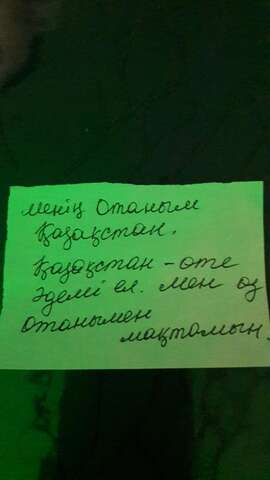 Менің Отаным
Қазақстан.
Қазақстан - өте
әдемі ел. Мен өз
Отаныммен
мақтамын.